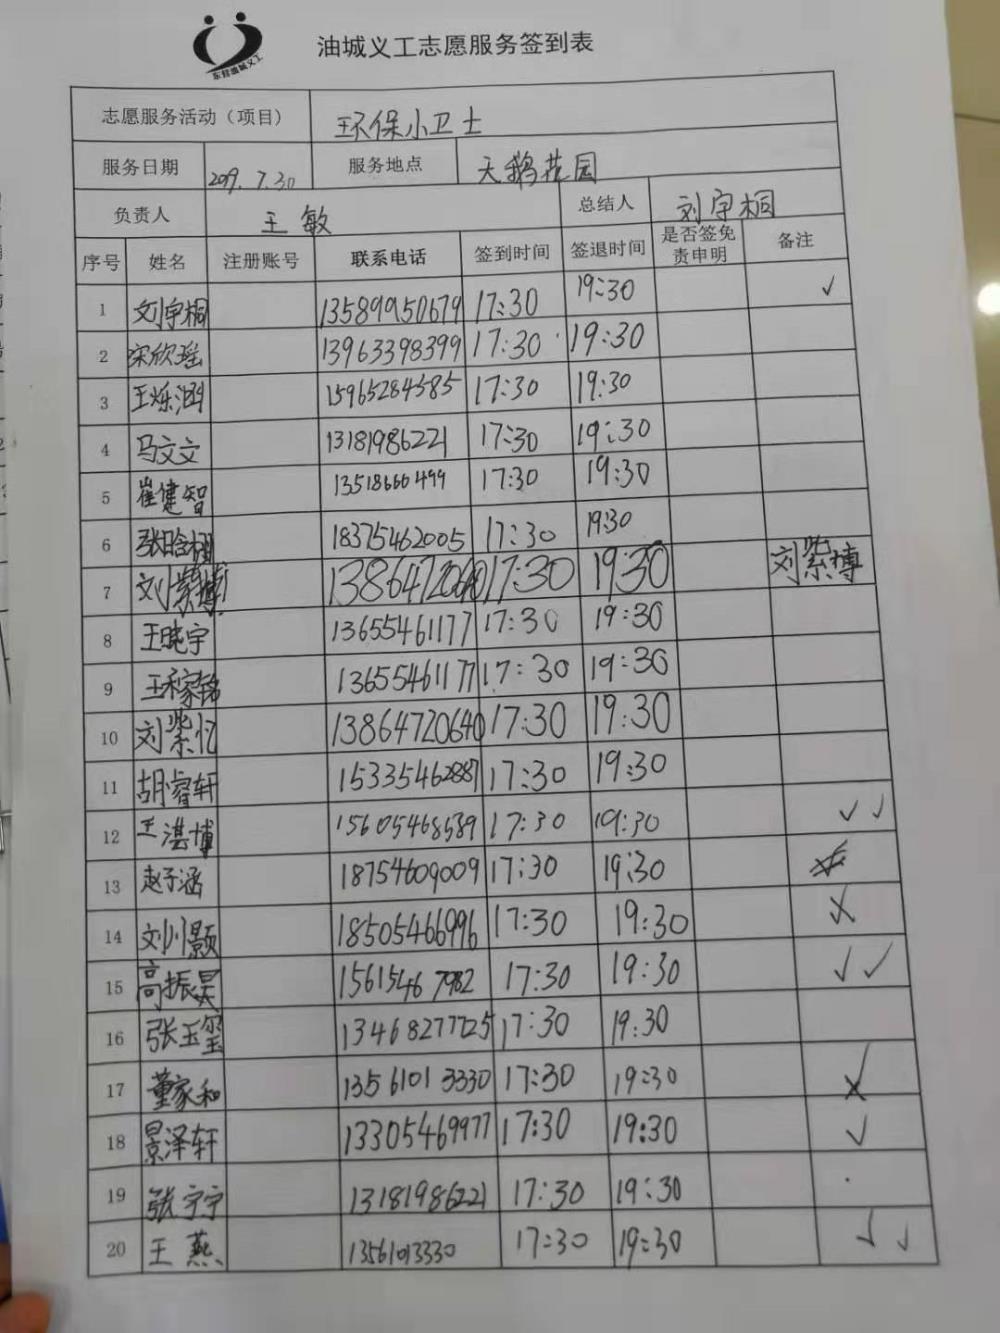 东营油城义工
油城义工志愿服务签到表
志愿服务活动（项目） 环保小卫士
服务日期 2019.7.30 服务地点 天鹅花园
负责人 王敏 总结人 刘宇桐
序号 姓名 注册账号 联系电话 签到时间 签退时间 是否签免责申明 备注
1 刘宇桐 13589950679 17:30 19:30 ✓
2 宋欣瑶 13963398399 17:30 19:30
3 王烁涵 15965284585 17:30 19:30
4 马文文 13181986221 17:30 19:30
5 崔建智 13518666499 17:30 19:30
6 张晗栩 18375462005 17:30 19:30
7 刘紫博 13864720640 17:30 19:30 刘紫博
8 王晓宇 13655461177 17:30 19:30
9 王稼铭 13655461177 17:30 19:30
10 刘紫忆 13864720640 17:30 19:30
11 胡睿轩 15335462887 17:30 19:30
12 王湛博 15605468589 17:30 19:30 ✓ ✓
13 赵子涵 18754609009 17:30 19:30
14 刘川颢 18505466996 17:30 19:30 ✗
15 高振昊 15615467982 17:30 19:30 ✓ ✓
16 张玉玺 13468277725 17:30 19:30
17 董家和 13561013330 17:30 19:30 ✗
18 景泽轩 13305469977 17:30 19:30 ✓
19 张宇宁 13181986221 17:30 19:30
20 王燕 13561013330 17:30 19:30 ✓ ✓